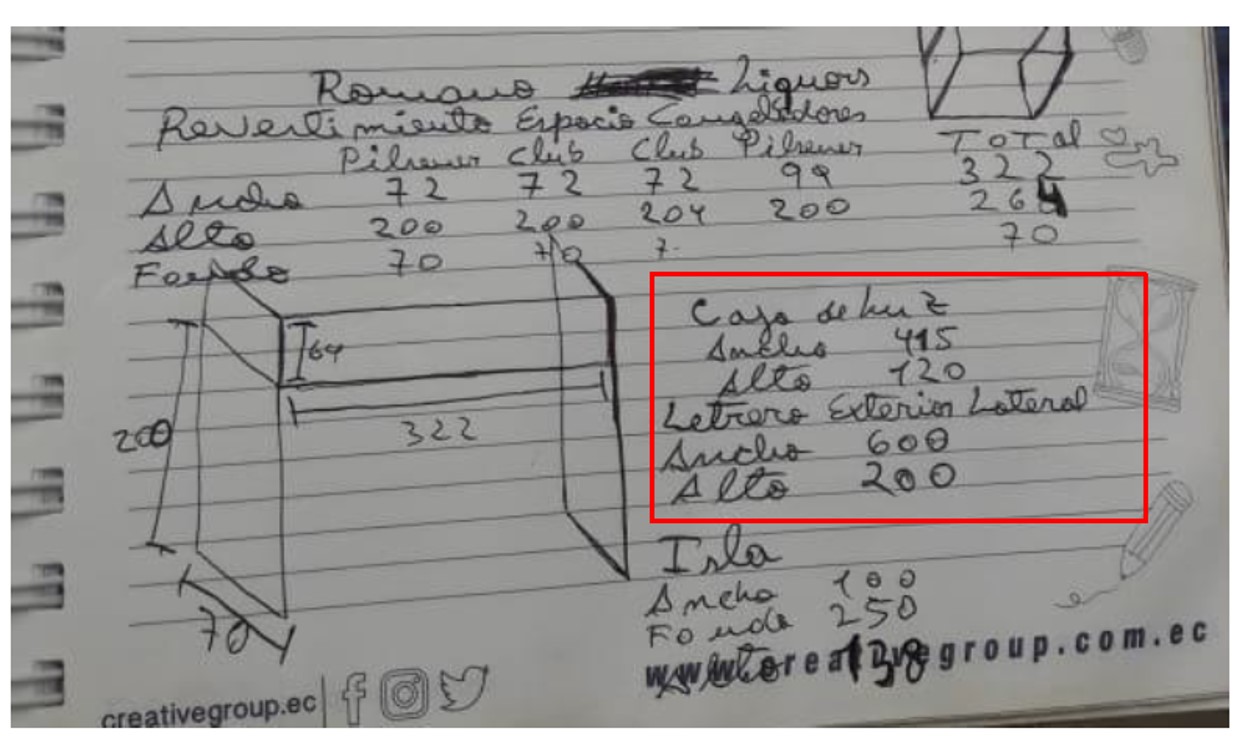 Romano Liquors
Revertimiento Espacio Congeladores
Pilsener Club Club Pilsener Total
Ancho 72 72 72 99 322
Alto 200 200 204 200 264
Fondo 70 70 7 70
64
322
200
70
Caja de luz
Ancho 415
Alto 120
Letrero Exterior Lateral
Ancho 600
Alto 200
Isla
Ancho 100
Fondo 250
Alto 138
www.creativegroup.com.ec
creativegroup.ec